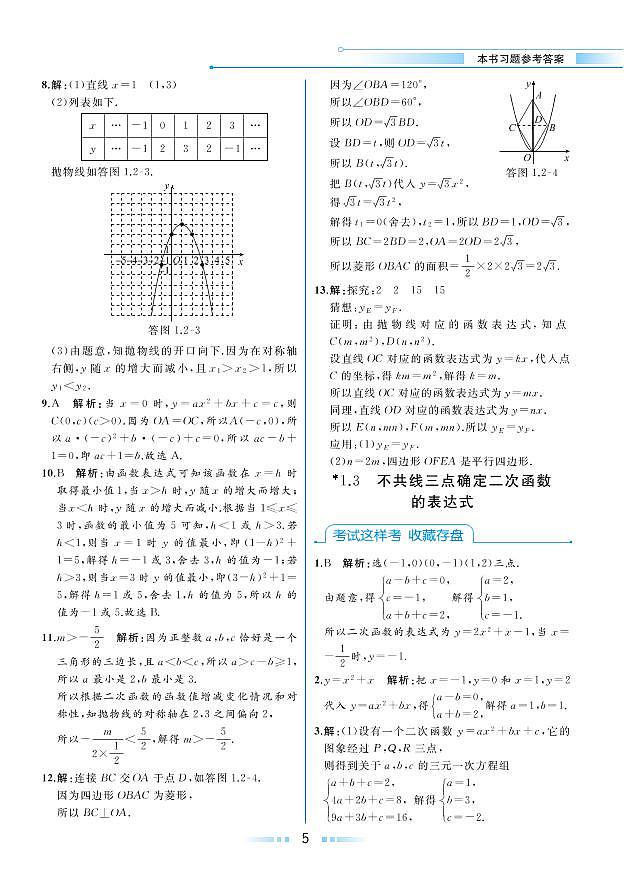 本书习题参考答案
8.解:(1)直线 x=1 (1,3)
(2)列表如下.
x … -1 0 1 2 3 …
y … -1 2 3 2 -1 …
抛物线如答图 1.2-3.
y
-5-4-3-2-1 O 1 2 3 4 5 x
-1
答图 1.2-3
(3)由题意,知抛物线的开口向下.因为在对称轴
右侧,y 随 x 的增大而减小,且 x₁>x₂>1,所以
y₁<y₂.
9.A 解析:当 x=0 时,y=ax²+bx+c=c,则
C(0,c)(c>0).因为 OA=OC,所以A(-c,0),所
以 a·(-c)²+b·(-c)+c=0,所以 ac-b+
1=0,即 ac+1=b.故选 A.
10.B 解析:由函数表达式可知该函数在 x=h 时
取得最小值 1,当 x>h 时,y 随 x 的增大而增大;
当x<h 时,y 随 x 的增大而减小.根据当 1≤x≤
3 时,函数的最小值为 5 可知,h<1 或 h>3.若
h<1,则当 x=1 时 y 的值最小,即(1-h)²+
1=5,解得 h=-1 或 3,舍去 3,h 的值为-1;若
h>3,则当x=3 时 y 的值最小,即(3-h)²+1=
5,解得 h=1 或 5,舍去 1,h 的值为 5,所以 h 的
值为-1 或 5.故选 B.
11.m>-5/2 解析:因为正整数 a,b,c 恰好是一个
三角形的三边长,且 a<b<c,所以 a>c-b≥1,
所以 a 最小是 2,b 最小是 3.
所以根据二次函数的函数值增减变化情况和对
称性,知抛物线的对称轴在 2,3 之间偏向 2,
所以-m/(2×1/2)<5/2,解得 m>-5/2.
12.解:连接 BC 交OA 于点 D,如答图 1.2-4.
因为四边形 OBAC 为菱形,
所以 BC⊥OA.
因为∠OBA=120°,
所以∠OBD=60°,
所以 OD=√3BD.
设 BD=t,则 OD=√3t,
所以 B(t,√3t).
把 B(t,√3t)代入 y=√3x²,
得√3t=√3t²,
y
A
C D B
O x
答图 1.2-4
解得 t₁=0(舍去),t₂=1,所以 BD=1,OD=√3,
所以 BC=2BD=2,OA=2OD=2√3,
所以菱形 OBAC 的面积=1/2×2×2√3=2√3.
13.解:探究:2 2 15 15
猜想:y_E=y_F.
证明:由抛物线对应的函数表达式,知点
C(m,m²),D(n,n²).
设直线 OC 对应的函数表达式为 y=kx,代入点
C 的坐标,得 km=m²,解得 k=m.
所以直线 OC 对应的函数表达式为 y=mx.
同理,直线 OD 对应的函数表达式为 y=nx.
所以 E(n,mn),F(m,mn).所以 y_E=y_F.
应用:(1)y_E=y_F.
(2)n=2m,四边形 OFEA 是平行四边形.
*1.3 不共线三点确定二次函数
的表达式
考试这样考 收藏存盘
1.B 解析:选(-1,0)(0,-1)(1,2)三点.
由题意,得{a-b+c=0, c=-1, a+b+c=2, 解得{a=2, b=1, c=-1.
所以二次函数的表达式为 y=2x²+x-1,当 x=
-1/2时,y=-1.
2.y=x²+x 解析:把 x=-1,y=0 和 x=1,y=2
代入 y=ax²+bx,得{a-b=0, a+b=2, 解得 a=1,b=1.
3.解:(1)设有一个二次函数 y=ax²+bx+c,它的
图象经过 P,Q,R 三点,
则得到关于 a,b,c 的三元一次方程组
{a+b+c=2, 4a+2b+c=8, 9a+3b+c=16, 解得{a=1, b=3, c=-2.
5